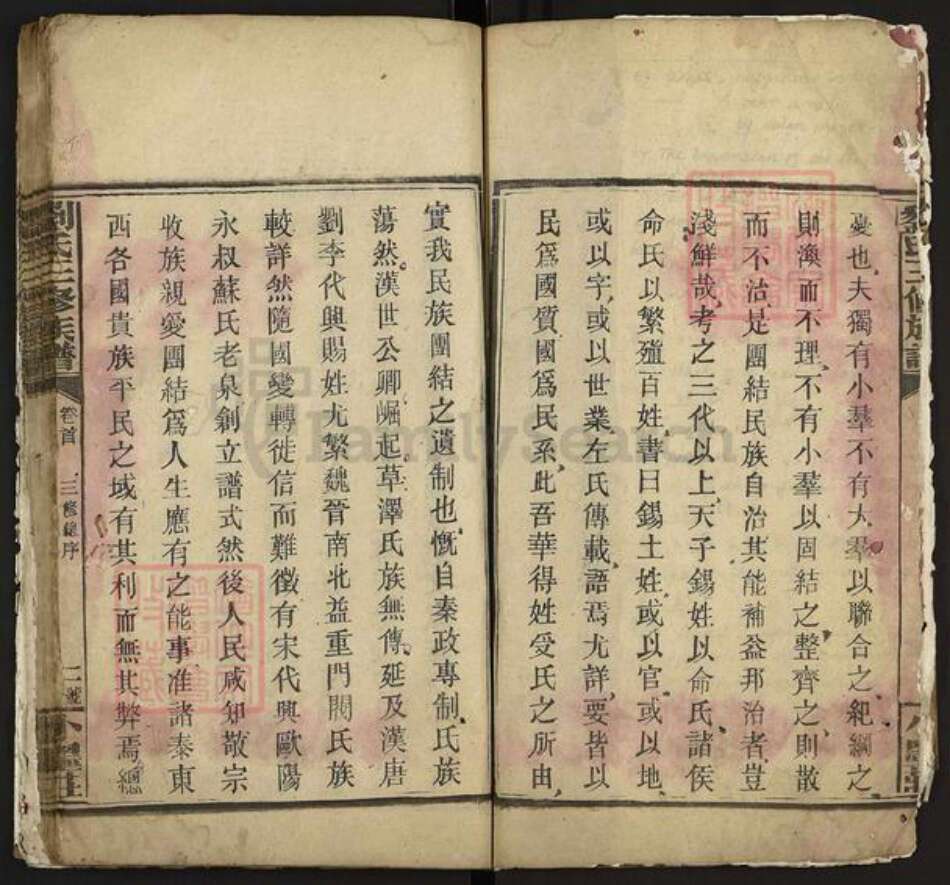 憂也夫獨有小羣不有大羣以聯合之紀綱之
則渙而不理不有小羣以固結之整齊之則散
而不治是團結民族自治其能補益邦治者豈
淺鮮哉考之三代以上天子錫姓以命氏諸侯
命氏以繁殖百姓書曰錫土姓或以官或以地
或以字或以世業左氏傳載語焉尤詳要皆以
民爲國質國爲民系此吾華得姓受氏之所由
實我民族團結之遺制也慨自秦政專制氏族
蕩然漢世公卿崛起草澤氏族無傳延及漢唐
劉李代興賜姓尤繁魏晉南北益重門閥氏族
較詳然隨國變轉徙信而難徵有宋代興歐陽
永叔蘇氏老泉創立譜式然後人民咸知敬宗
收族親愛團結爲人生應有之能事准諸泰東
西各國貴族平民之域有其利而無其弊焉緬
劉氏三修族譜
卷首
三修總序
二
FamilySearch